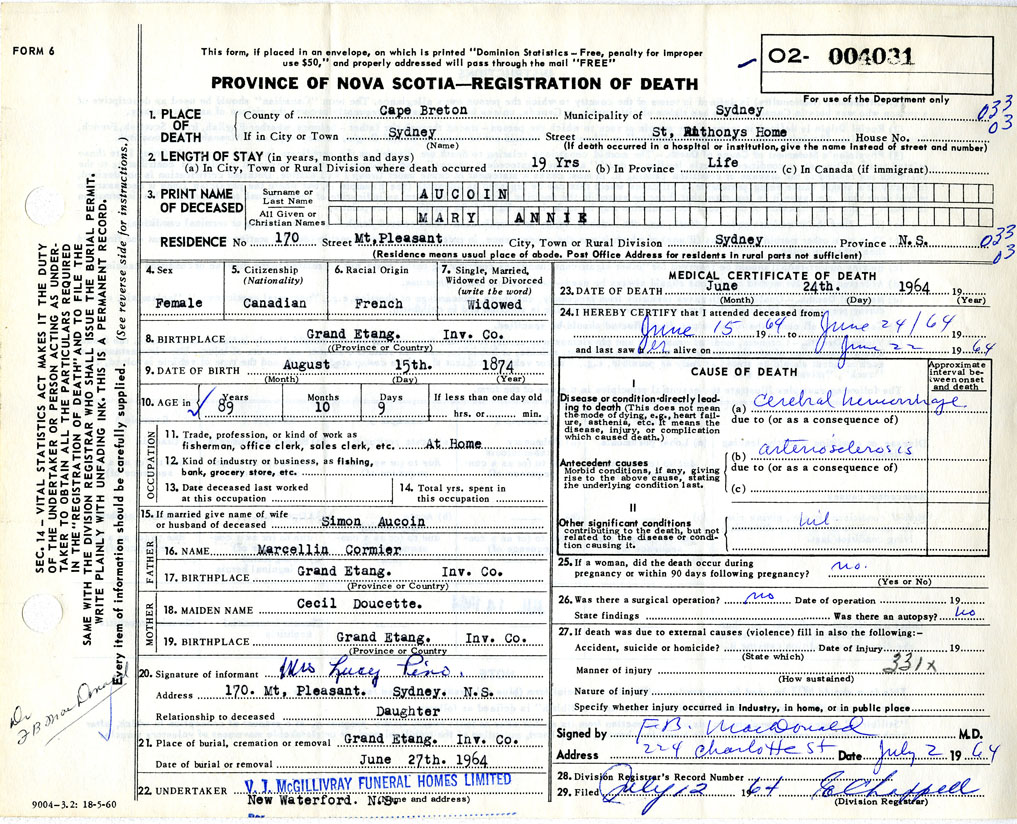 FORM 6
This form, if placed in an envelope, on which is printed "Dominion Statistics – Free, penalty for improper
use $50," and properly addressed will pass through the mail "FREE"
PROVINCE OF NOVA SCOTIA—REGISTRATION OF DEATH
02- 004031
For use of the Department only
033
03
1. PLACE OF DEATH
County of Cape Breton Municipality of Sydney
If in City or Town Sydney Street St, Anthonys Home House No.
(Name) (If death occurred in a hospital or institution, give the name instead of street and number)
2. LENGTH OF STAY (in years, months and days)
(a) In City, Town or Rural Division where death occurred 19 Yrs (b) In Province Life (c) In Canada (if immigrant)
3. PRINT NAME OF DECEASED
Surname or Last Name AUCOIN
All Given or Christian Names MARY ANNIE
RESIDENCE No 170 Street Mt,Pleasant City, Town or Rural Division Sydney Province N.S.
(Residence means usual place of abode. Post Office Address for residents in rural parts not sufficient)
033
03
4. Sex
Female
5. Citizenship
(Nationality)
Canadian
6. Racial Origin
French
7. Single, Married,
Widowed or Divorced
(write the word)
Widowed
8. BIRTHPLACE Grand Etang. Inv. Co.
((Province or Country)
9. DATE OF BIRTH August 15th. 1874
(Month) (Day) (Year)
10. AGE in Years Months Days If less than one day old
89 10 9 hrs. or min.
OCCUPATION
11. Trade, profession, or kind of work as
fisherman, office clerk, sales clerk, etc. At Home
12. Kind of industry or business, as fishing,
bank, grocery store, etc.
13. Date deceased last worked
at this occupation
14. Total yrs. spent in
this occupation
15. If married give name of wife
or husband of deceased Simon Aucoin
FATHER
16. NAME Marcellin Cormier
17. BIRTHPLACE Grand Etang. Inv. Co.
(Province or Country)
MOTHER
18. MAIDEN NAME Cecil Doucette.
19. BIRTHPLACE Grand Etang. Inv. Co.
(Province or Country
20. Signature of informant Mrs Lucy Pino.
Address 170. Mt, Pleasant. Sydney. N.S.
Relationship to deceased Daughter
21. Place of burial, cremation or removal Grand Etang. Inv. Co.
Date of burial or removal June 27th. 1964
22. UNDERTAKER V. J. McGILLIVRAY FUNERAL HOMES LIMITED
New Waterford. N.S. (Name and address)
Per
MEDICAL CERTIFICATE OF DEATH
23. DATE OF DEATH June 24th. 1964 19
(Month) (Day) (Year)
24. I HEREBY CERTIFY that I attended deceased from:
June 15 64 19 to June 24/64 19
and last saw her alive on June 22 1964
CAUSE OF DEATH
Approximate
interval be-
tween onset
and death
I
Disease or condition directly lead-
ing to death (This does not mean
the mode of dying, e.g., heart fail-
ure, asthenia, etc. It means the
disease, injury, or complication
which caused death.)
(a) cerebral hemorrhage
due to (or as a consequence of)
Antecedent causes
Morbid conditions, if any, giving
rise to the above cause, stating
the underlying condition last.
(b) arteriosclerosis
due to (or as a consequence of)
(c)
II
Other significant conditions
contributing to the death, but not
related to the disease or condi-
tion causing it.
nil
25. If a woman, did the death occur during
pregnancy or within 90 days following pregnancy? no.
(Yes or No)
26. Was there a surgical operation? no Date of operation 19
State findings Was there an autopsy? no
27. If death was due to external causes (violence) fill in also the following:–
Accident, suicide or homicide? Date of injury 19
(State which)
331x
Manner of injury
(How sustained)
Nature of injury
Specify whether injury occurred in industry, in home, or in public place
Signed by F.B. MacDonald M.D.
Address 224 Charlotte St Date July 2 1964
28. Division Registrar's Record Number
29. Filed July 12 1964
(Division Registrar)
SEC. 14 – VITAL STATISTICS ACT MAKES IT THE DUTY
OF THE UNDERTAKER OR PERSON ACTING AS UNDER-
TAKER TO OBTAIN ALL THE PARTICULARS REQUIRED
IN THE "REGISTRATION OF DEATH" AND TO FILE THE
SAME WITH THE DIVISION REGISTRAR WHO SHALL ISSUE THE BURIAL PERMIT.
WRITE PLAINLY WITH UNFADING INK. THIS IS A PERMANENT RECORD.
Every item of information should be carefully supplied. (See reverse side for instructions.)
Dr
F B MacDonald
9004-3.2: 18-5-60